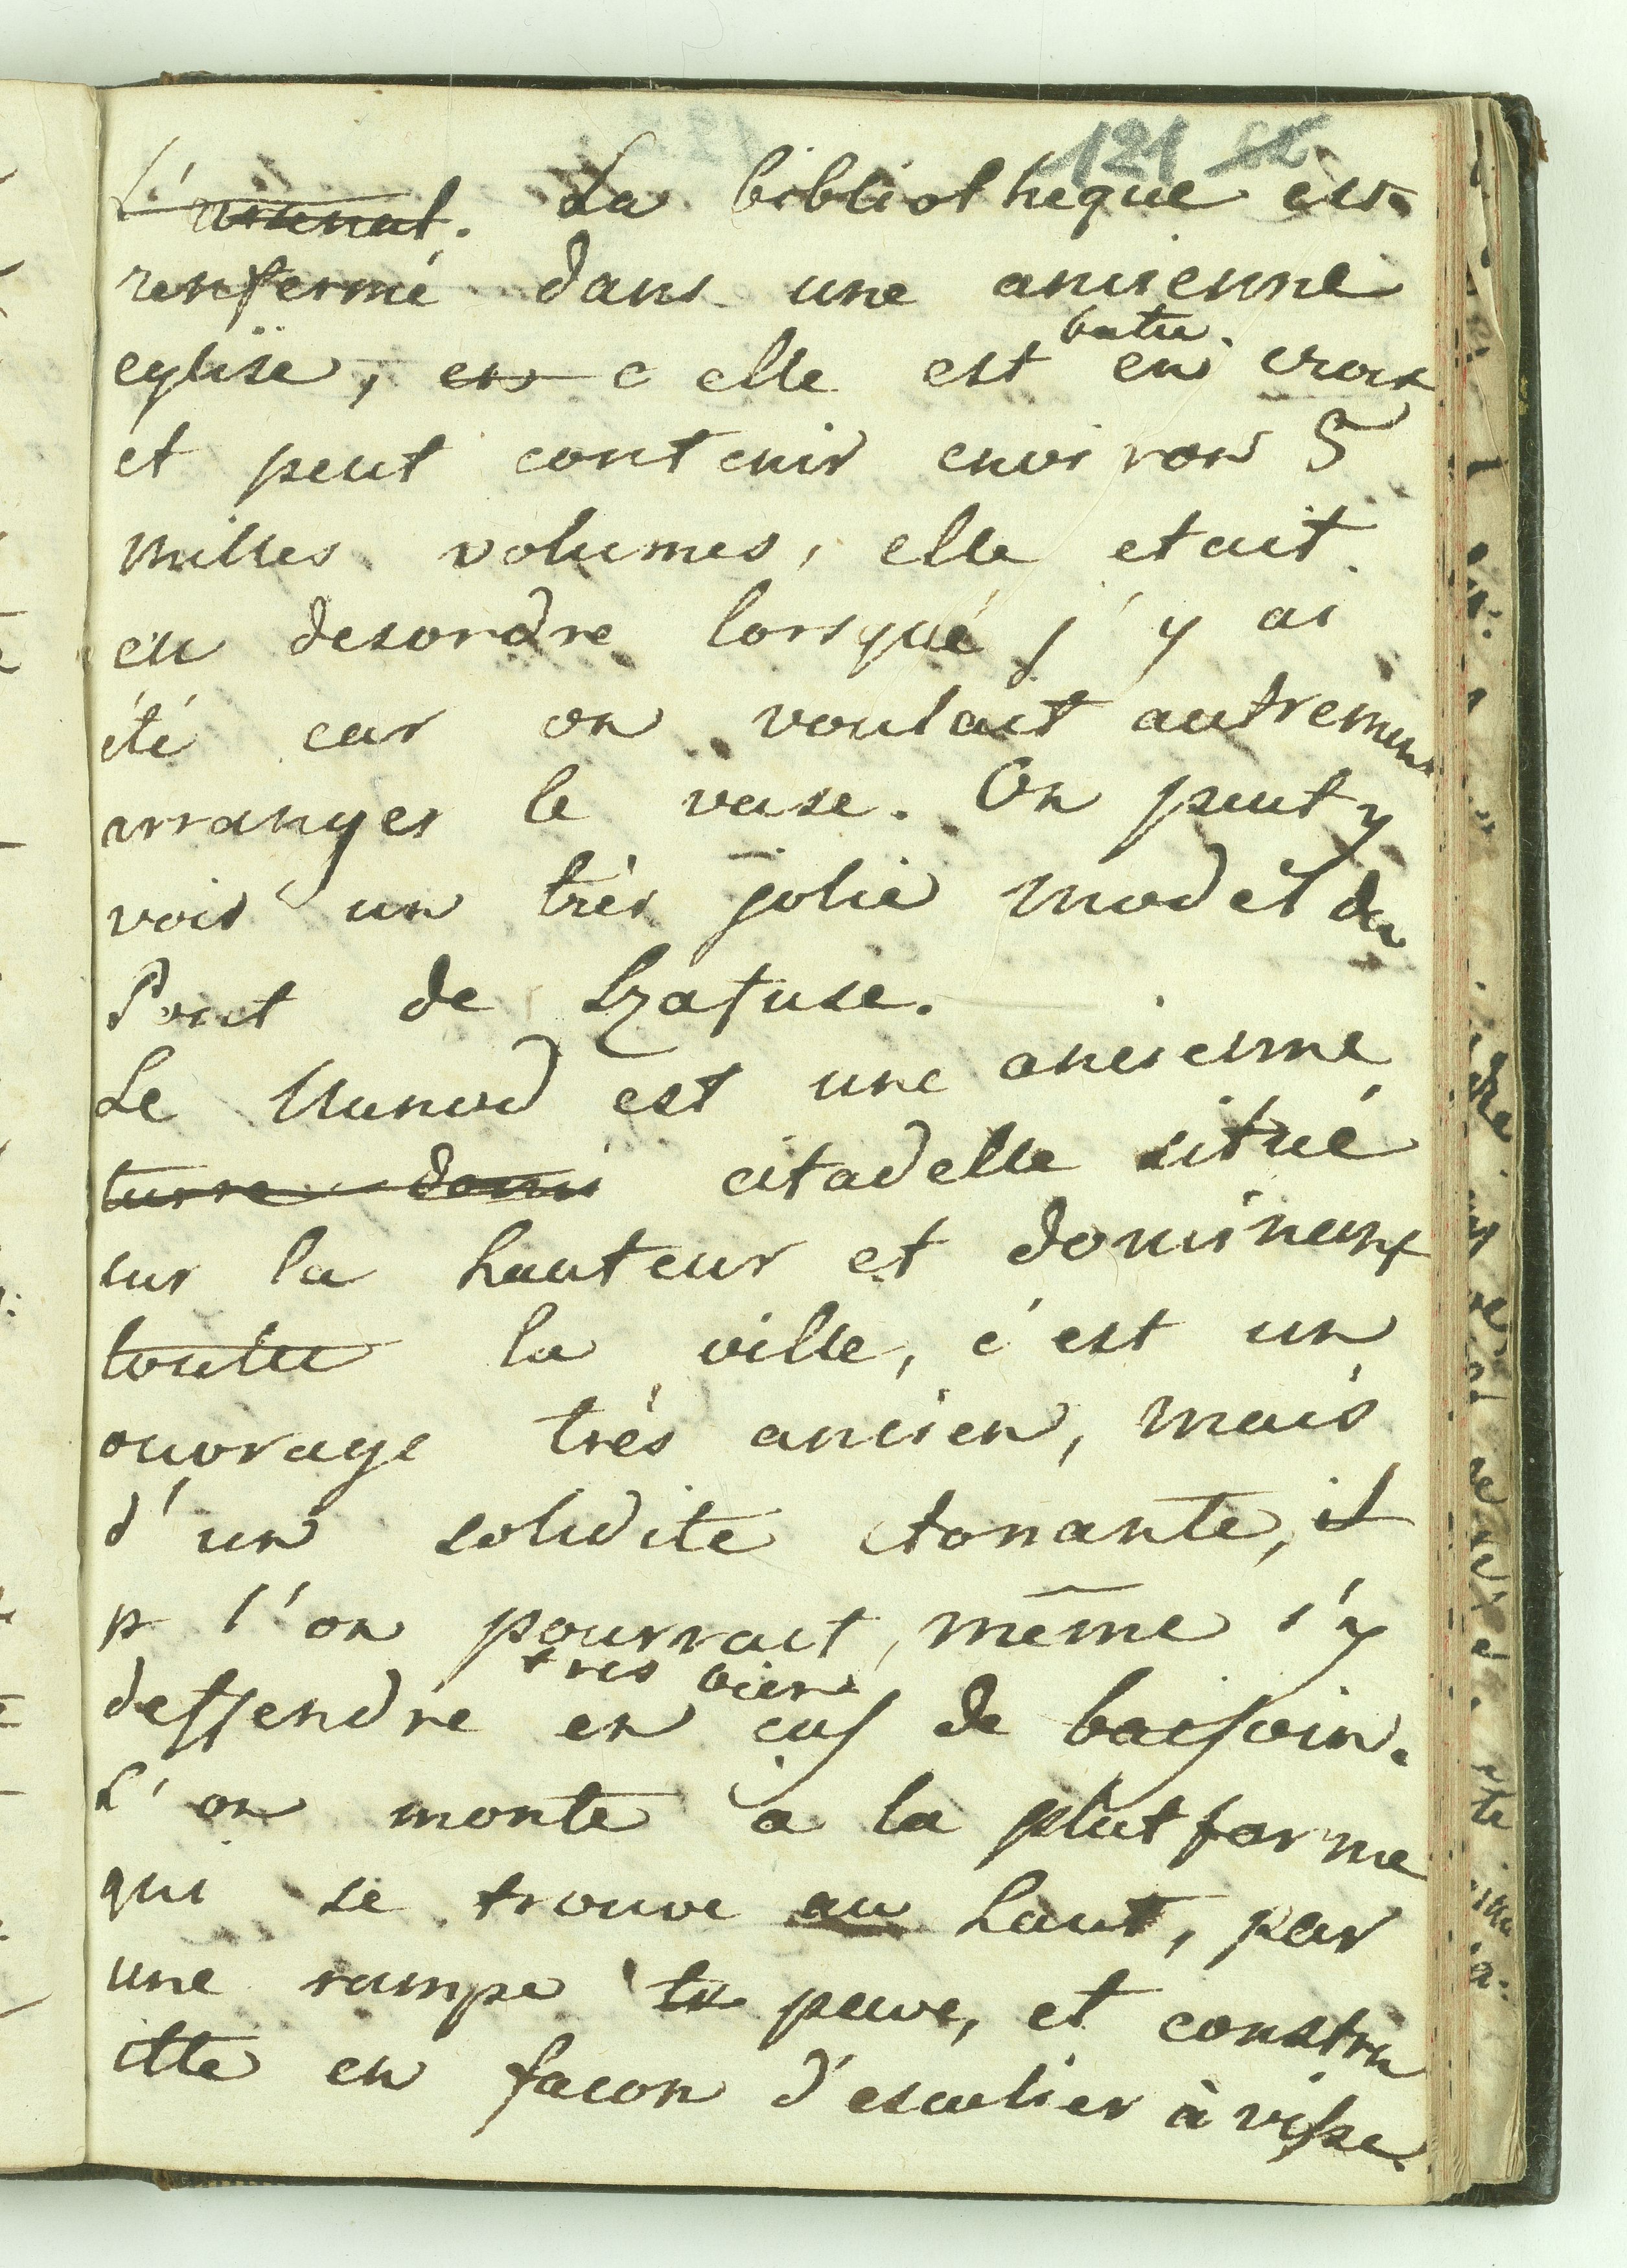 121
L'arsenal. La bibliotheque est
renfermé dans une ancienne
eglise, en c elle est batie en croix
et peut contenir environ 5
milles volumes, elle etait
en desordre lorsque j'y ai
été car on voulait autrement
arranger le vase. On peut y
voir un très jolie model du
Pont de Szafuse.
Le Munod est une ancienne
turre dans citadelle situé
sur la hauteur et dominant
toutte la ville, c'est un
ouvrage très ancien, mais
d'un solidite etonante, il
p l'on pourrait même s'y
deffendre très bien en cas de baisoin.
L'on monte a la platforme
qui se trouve au haut, par
une rampe tr pave, et constru
itte en facon d'escalier à visse.